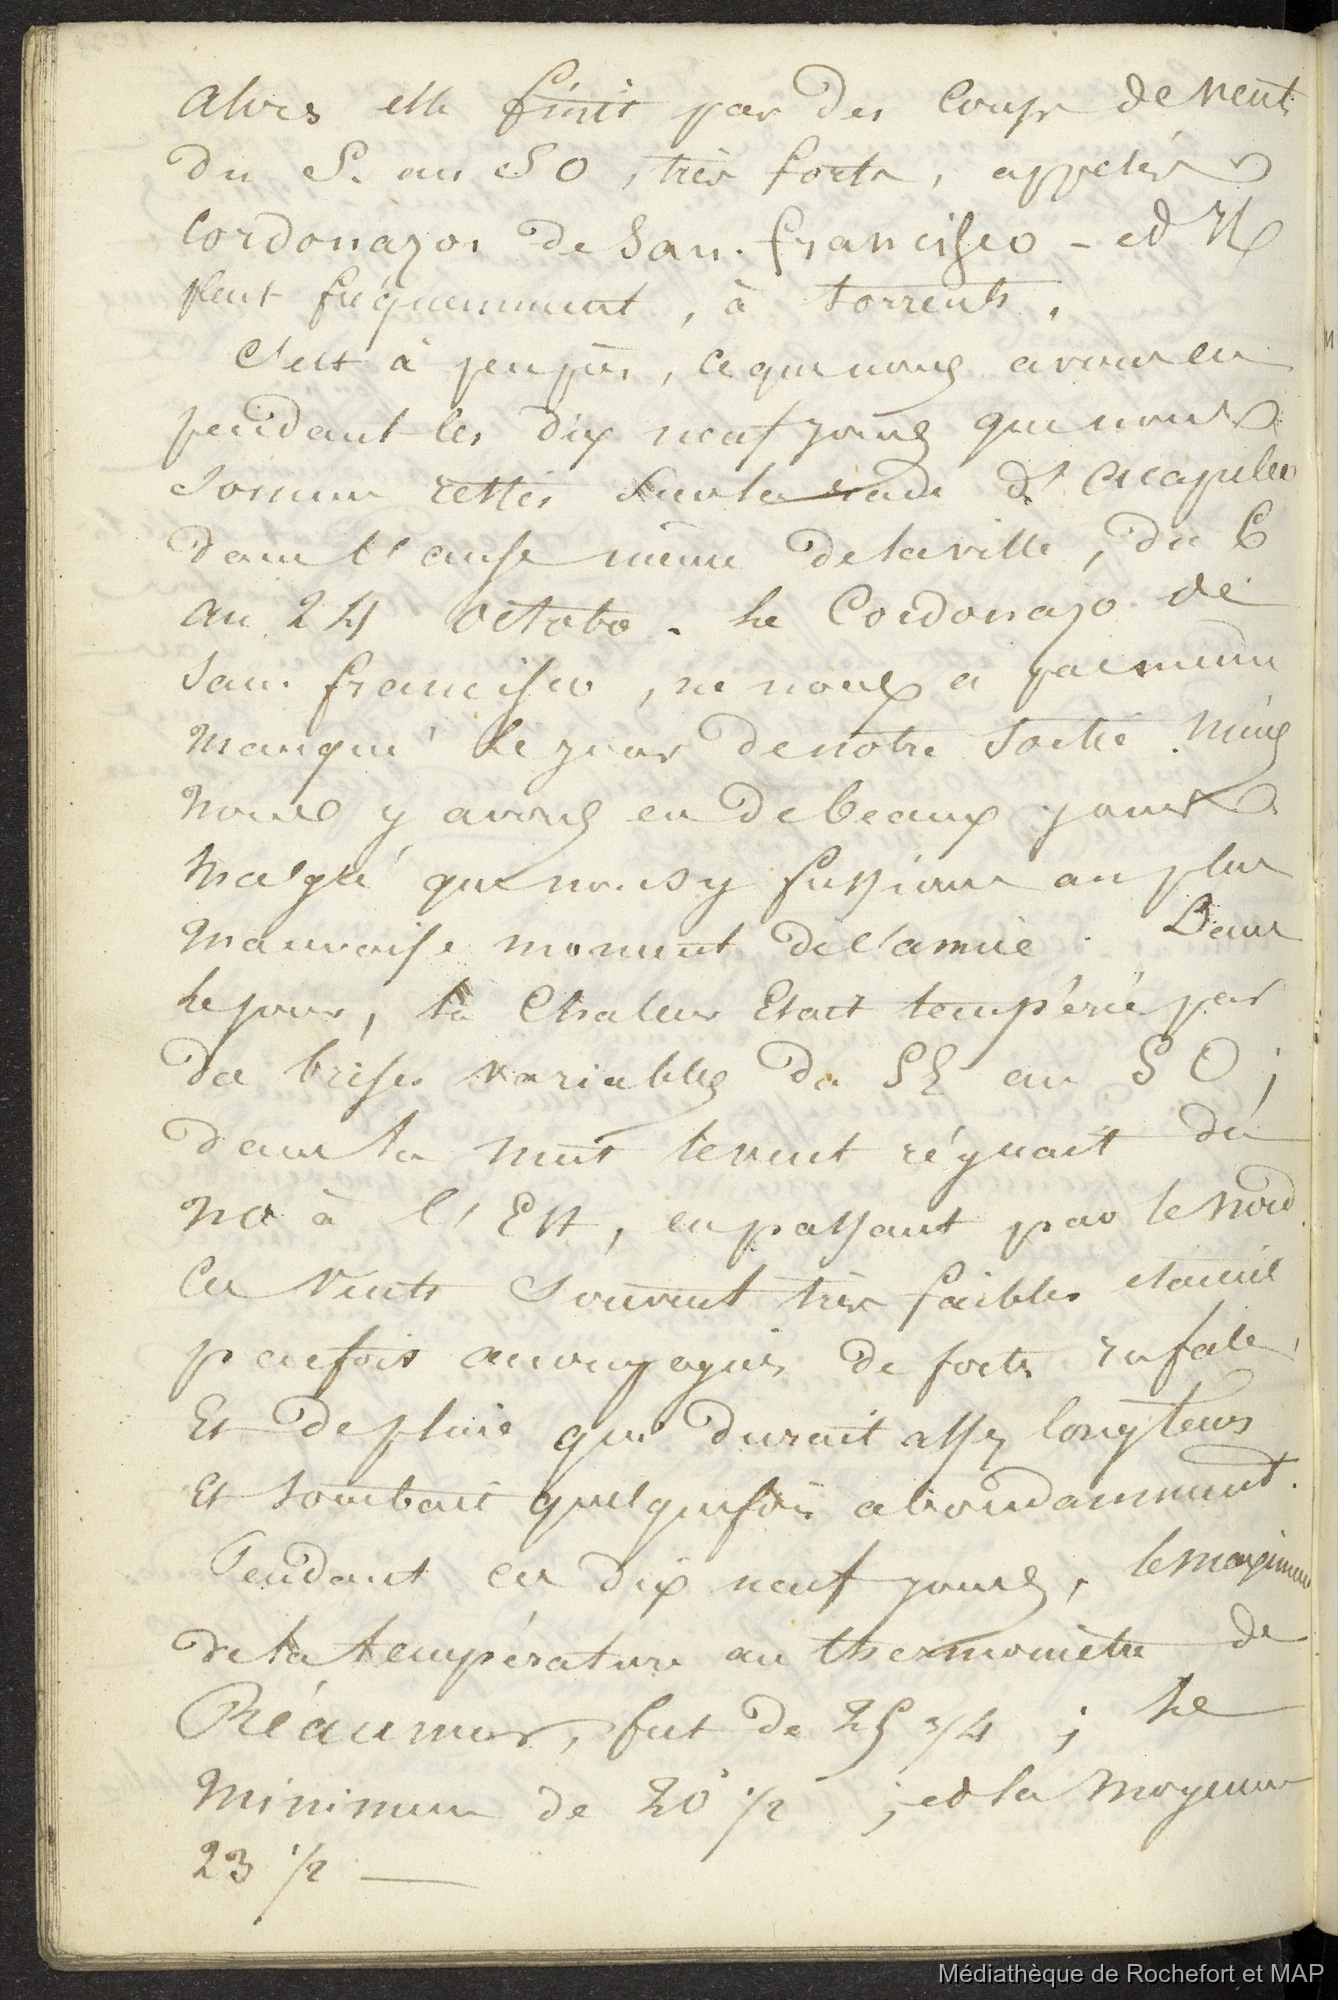 alors elle finit par des coups de vent
du S. au SO, très forts, appelés
Cordonazos de San. Francisco - et il
pleut fréquemment, à torrents,
C'est à peu près, ce que nous avons eu
pendant les dix neuf jours que nous
sommes restés sur la rade d'Acapulco
dans l'anse même de la ville, du 6
au 24 octobre. Le Cordonazo de
San. francisco, ne nous a pas même
manqué le jour de notre sortie. Mais
nous y avons eu de beaux jours
Malgré que nous y fussions au plus
mauvaise moment de l'année. Dans
le jour, la chaleur était tempérée par
des brises variables du SE au SO;
dans la nuit le vent régnait du
NO à l'Est, en passant par le Nord.
Ces vents souvent très faibles étaient
parefois accompagnés de forts rafales,
Et de pluie qui durait assez longtems
Et tombait quelquefois abondamment.
Pendant ces dix neuf jours, le maximum
de la température au thermomètre de
Réaumur, fut de 25 3/4; le
minimum de 20° 1/2; et la moyenne
23 1/2 —
Médiathèque de Rochefort et MAP